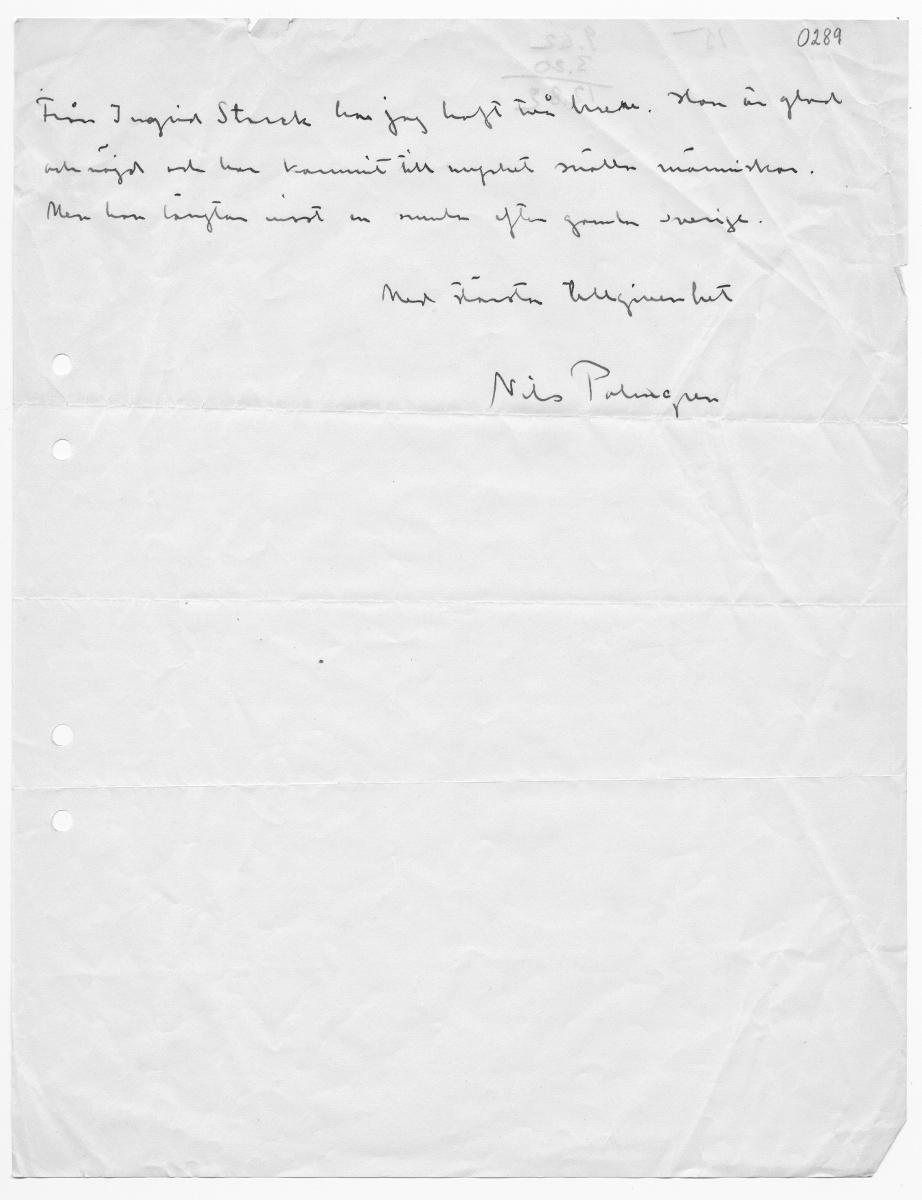 0289
Från Ingrid Starck har jag haft två brev. Hon är glad
och nöjd och har kommit till mycket snälla människor.
Men hon längtar visst en smula efter gamla Sverige.
Med största tillgivenhet
Nils Palmgren